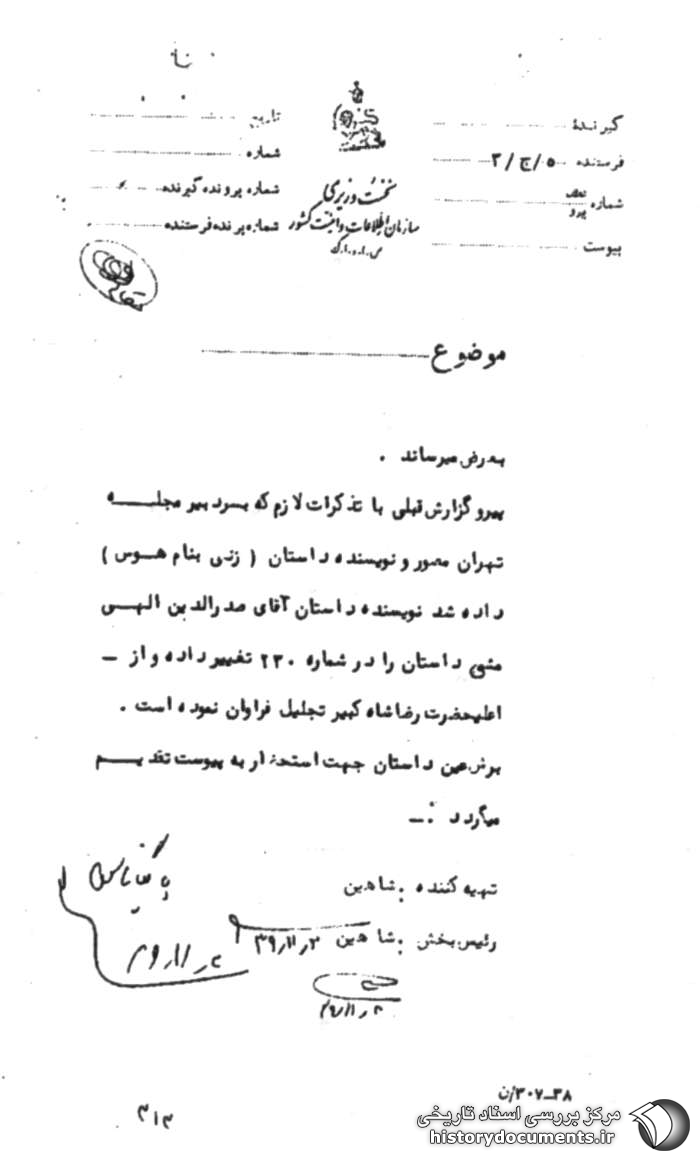 گیرندهٔ
فرستنده ۵/ج/۲
شماره
پیوست
نخست وزیری
سازمان اطلاعات و امنیت کشور
س.ا.و.ا.ک
تاریخ
شماره
شماره پرونده گیرنده
شماره پرنده فرستنده
موضوع
بعرض میرساند .
پیرو گزارش قبلی با تذکرات لازم که بسردبیر مجلــه
تهران مصور و نویسنده داستان ( زنی بنام هـوس )
داده شد نویسنده داستان آقای صدرالدین الهــی
مشی داستان را در شماره ۲۳۰ تغییر داده و از ــ
اعلیحضرت رضا شاه کبیر تجلیل فراوان نموده است .
برش عین داستان جهت استحضار به پیوست تقدیــم
میگردد :ــ
تهیه کننده : شاهین
رئیس بخش : شاهین ۳۹/۱۱/۲
۳۸-۳۰۷/ن
۳۱۳
مرکز بررسی اسناد تاریخی
historydocuments.ir